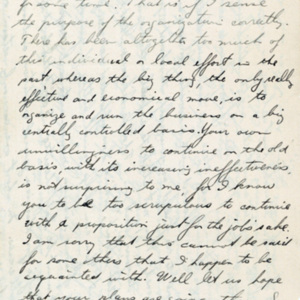 the purpose of the organization correctly.
There has been altogether too much of
this individual or local effort in the
past whereas the big thing, the only really
effective and economical move, is to
organize and run the business on a big
centrally controlled basis. Your own
unwillingness to continue on the old
basis, with its increasing ineffectiveness,
is not surprising to me, for I know
you to be too scrupulous to continue
with a proposition just for the jobs sake.
I am sorry that this cannot be said
for some others that I happen to be
acquainted with. Well let us hope
that your plans are